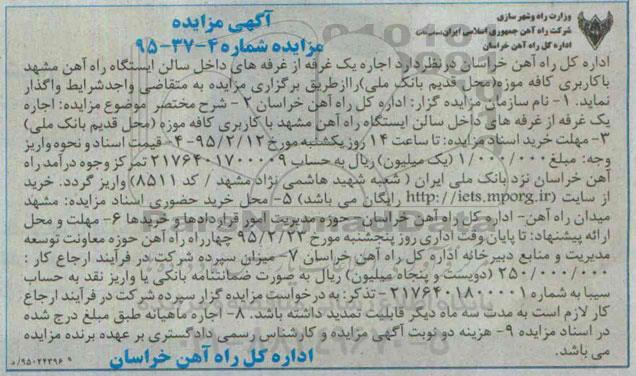 وزارت راه وشهر سازی
شرکت راه آهن جمهوری اسلامی ایران
اداره کل راه آهن خراسان
آگهی مزایده
مزایده شماره ۴-۳۷-۹۵
اداره کل راه آهن خراسان درنظر دارد اجاره یک غرفه از غرفه های داخل سالن ایستگاه راه آهن مشهد
باکاربری کافه موزه(محل قدیم بانک ملی)راازطریق برگزاری مزایده به متقاضی واجدشرایط واگذار
نماید. ۱- نام سازمان مزایده گزار: اداره کل راه آهن خراسان ۲- شرح مختصر موضوع مزایده: اجاره
یک غرفه از غرفه های داخل سالن ایستگاه راه آهن مشهد با کاربری کافه موزه (محل قدیم بانک ملی)
۳- مهلت خرید اسناد مزایده: تا ساعت ۱۴ روز یکشنبه مورخ ۹۵/۲/۱۲ ۴- قیمت اسناد و نحوه واریز
وجه: مبلغ ۱/۰۰۰/۰۰۰ (یک میلیون) ریال به حساب ۲۱۷۶۴۰۱۷۰۰۰۰۹ تمرکز وجوه درآمد راه
آهن خراسان نزد بانک ملی ایران ( شعبه شهید هاشمی نژاد مشهد / کد ۸۵۱۱) واریز گردد. خرید
از سایت (http://iets.mporg.ir رایگان می باشد) ۵- محل خرید حضوری اسناد مزایده: مشهد
میدان راه آهن- اداره کل راه آهن خراسان- حوزه مدیریت امور قراردادها و خریدها ۶- مهلت و محل
ارائه پیشنهاد: تا پایان وقت اداری روز پنجشنبه مورخ ۹۵/۲/۲۳ چهارراه راه آهن حوزه معاونت توسعه
مدیریت و منابع دبیرخانه اداره کل راه آهن خراسان ۷- میزان سپرده شرکت در فرآیند ارجاع کار :
۲۵۰/۰۰۰/۰۰۰ (دویست و پنجاه میلیون) ریال به صورت ضمانتنامه بانکی یا واریز نقد به حساب
سیبا به شماره ۲۱۷۶۴۰۱۸۰۰۰۰۱- تذکر: به درخواست مزایده گزار سپرده شرکت در فرآیند ارجاع
کار لازم است به مدت سه ماه دیگر قابلیت تمدید داشته باشد. ۸- اجاره ماهیانه طبق مبلغ درج شده
در اسناد مزایده ۹- هزینه دو نوبت آگهی مزایده و کارشناس رسمی دادگستری بر عهده برنده مزایده
می باشد.
اداره کل راه آهن خراسان
۹۵۰۲۴۳۹۶